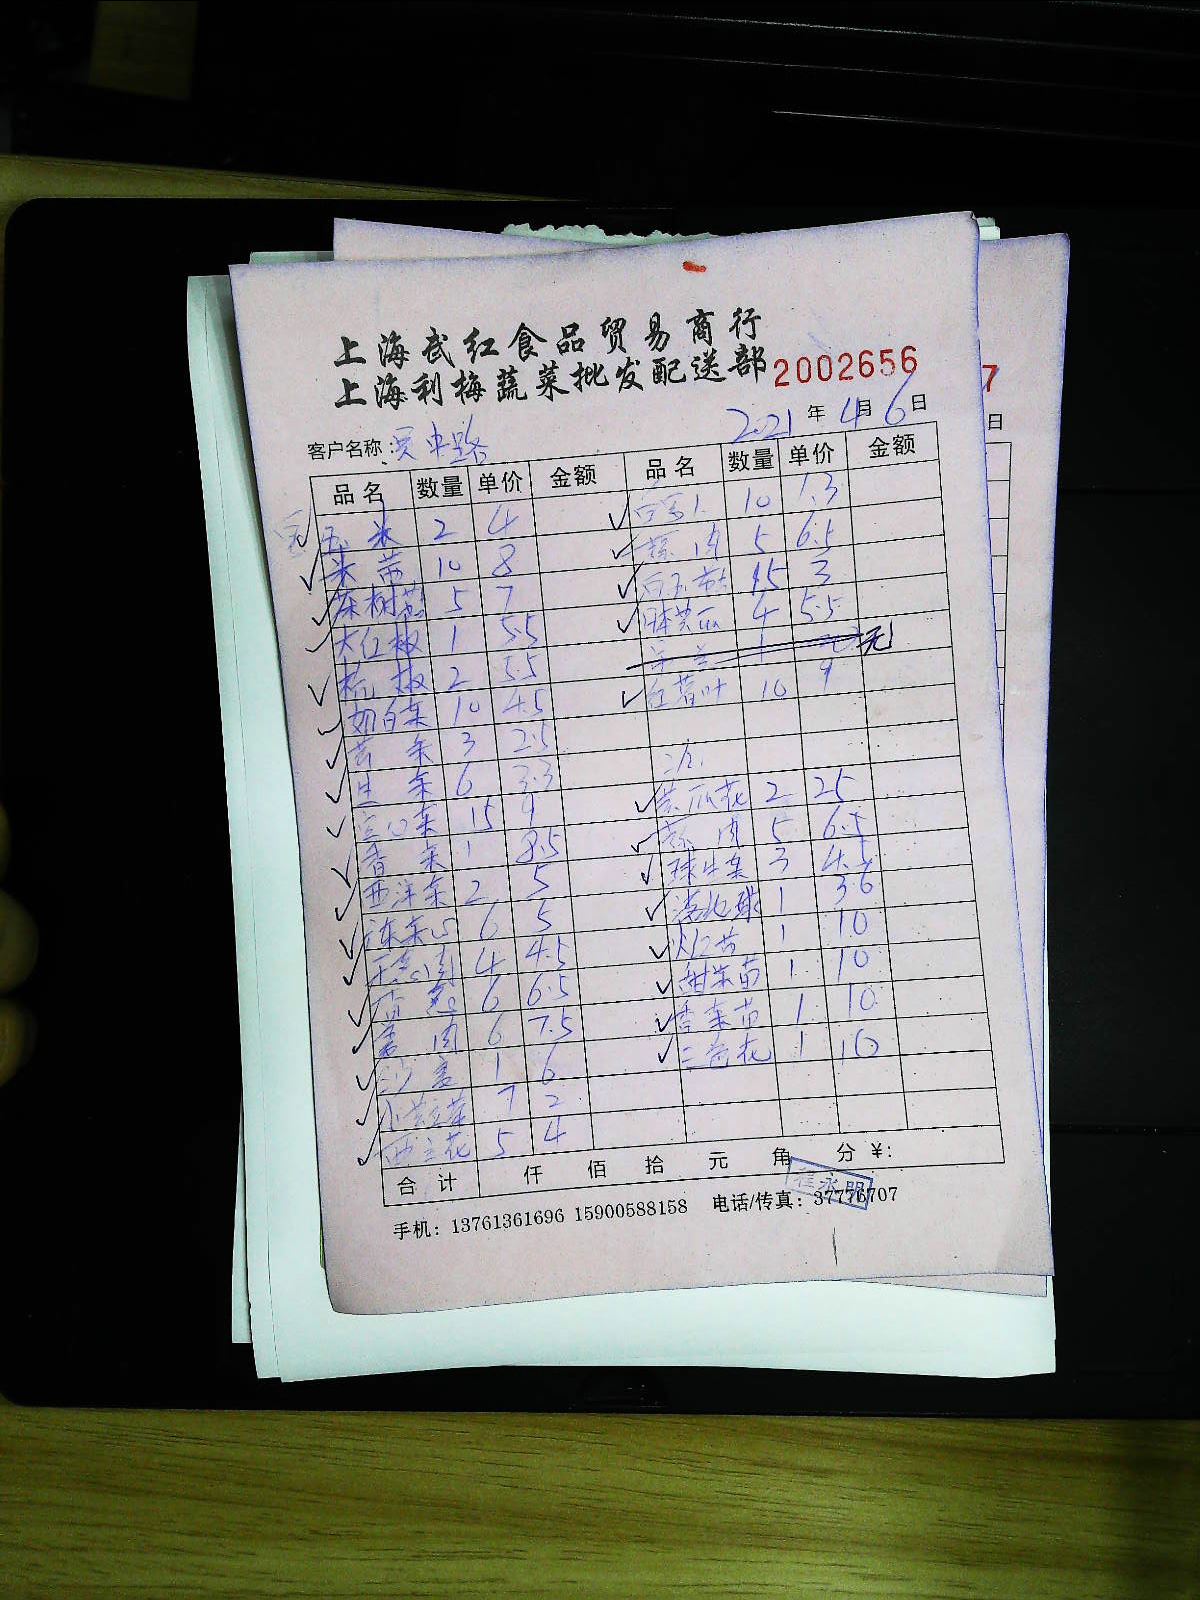 上海武红食品贸易商行
上海利梅蔬菜批发配送部 2002656
7
2021年4月6日
日
客户名称:
品名 数量 单价 金额 品名 数量 单价 金额
玉米 2 4 10 1.3
米苋 10 8 蒜肉 5 6.5
茶树菇 5 7 白玉菇 15 3
大红椒 1 5.5 4 5.5
杭椒 2 5.5 1 无
奶白菜 10 4.5 红薯叶 10 9
芹菜 3 2.5
生菜 6 3.3
空心菜 15 9 黄瓜花 2 25
香菜 1 8.5 蒜肉 5 6.5
西洋菜 2 5 球生菜 3 4.5
6 5 1 3.6
4 4.5 1 10
6 6.5 甜菜苗 1 10
姜肉 6 7.5 香菜苗 1 10
沙姜 1 6 三色花 1 10
7 2
西兰花 5 4
合计 仟 佰 拾 元 角 分 ¥:
程永明
手机: 13761361696 15900588158 电话/传真: 37776707